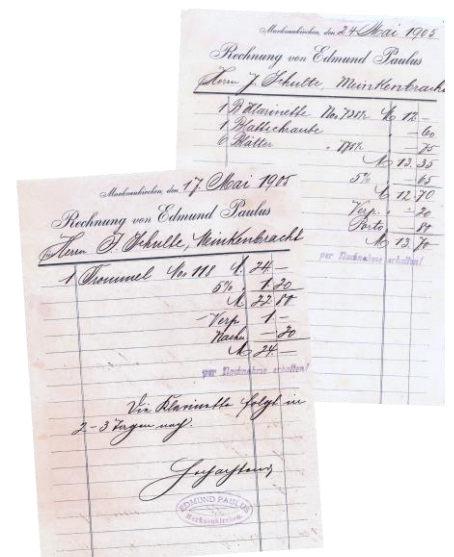 Markneukirchen, den 24 Mai 1905.
Rechnung von Edmund Paulus
Herrn J. Schulte, Meinkenbracht
1 B Klarinette No. 728½ M 12 —
1 Blattschraube — 60
6 Blätter — 75
M 13.35
5% — 65
M 12 70
Verp. — 20
Porto — 80
M 13.70
per Nachnahme erhalten!
Markneukirchen, den 17. Mai 1905
Rechnung von Edmund Paulus
Herrn J. Schulte, Meinkenbracht
1 Trommel No 118 M. 24 —
5% 1.20
M 22 80
Verp 1 —
Nachn — 20
M 24. —
per Nachnahme erhalten!
Die Klarinette folgt in
2-3 Tagen nach.
EDMUND PAULUS
Markneukirchen